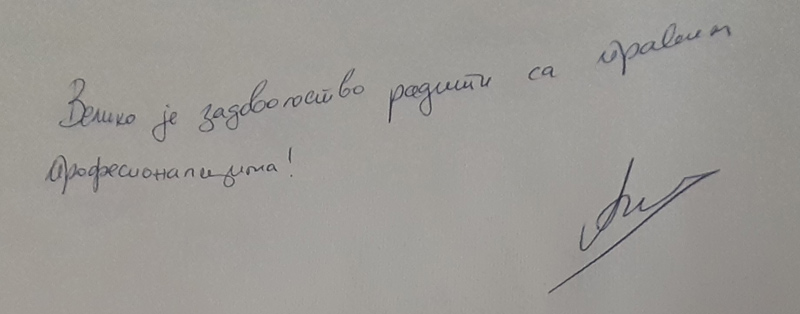 Велико је задовољство радити са правим
професионалцима!